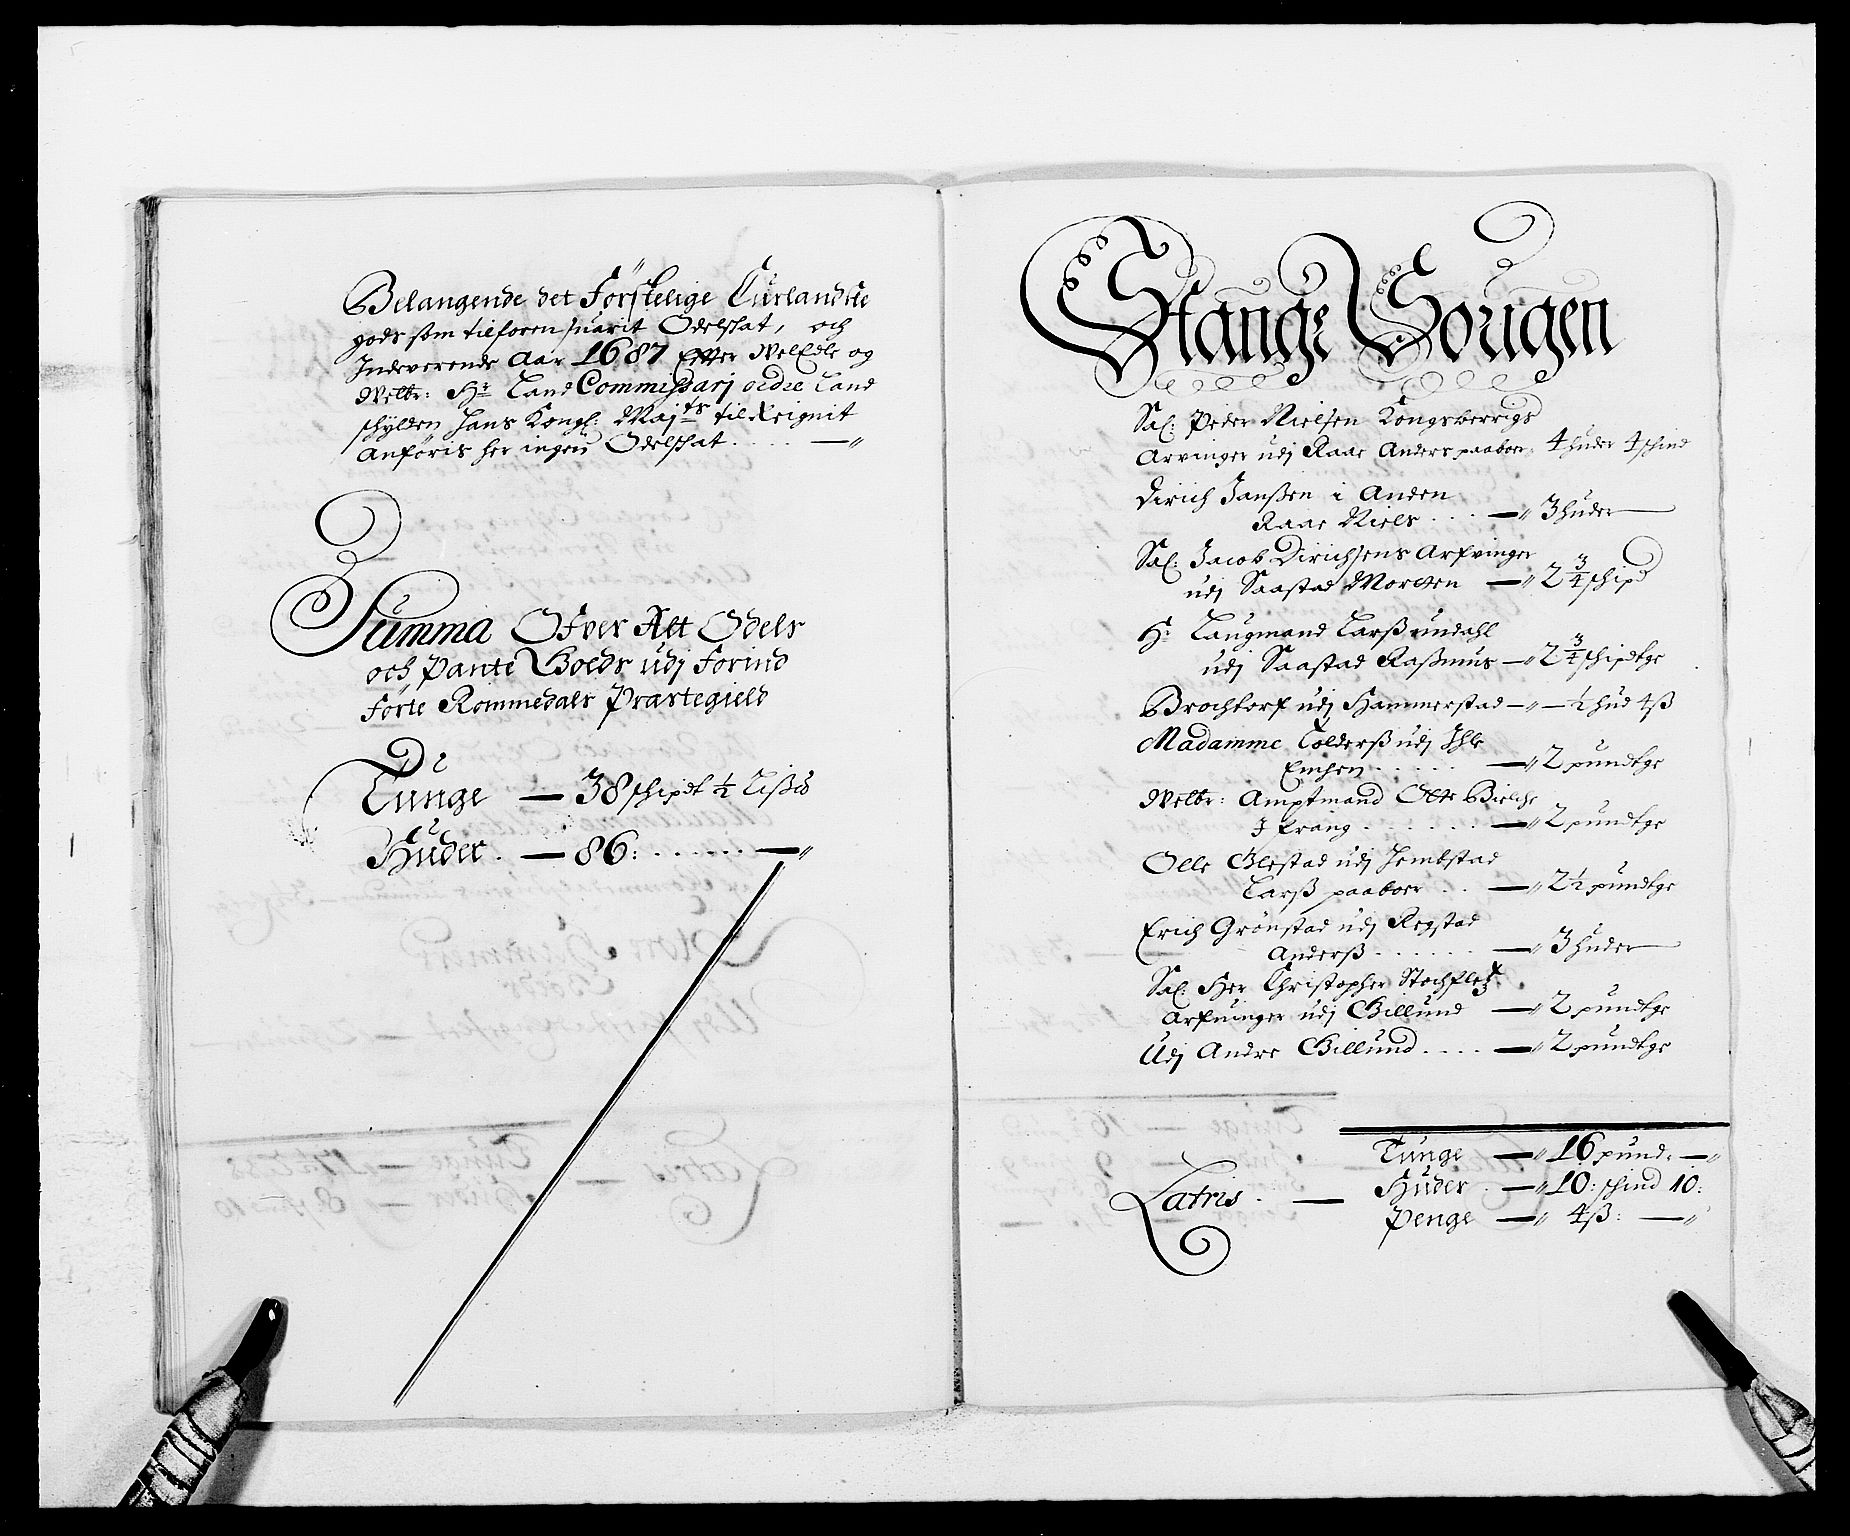 Belangende det Förstelige Curlandske
gods som tilforen suarit Odelschat, och
Indeverende Aar 1687 Efter WelEdle og
Welbr: Hr: Land Commissarj ordre Land
schylden hans Kongl: Majts til Reignit
Anföris her ingen Odelschat . . . . —"
Summa Ofver Alt Odels
och Pante Goeds udj forind
förte Rommedals Præstegield
Tunge — 38 schipdt ½ Lißd
Huder . — 86: . . . . . . —"
Stange Sougen
Sal: Peder Nielsen Kongsberrigs
Arvinger udj Raae Anders paaboer 4 huder 4 schind
Dirich Janßen i Anden
Raae Niels . . . —" 3 huder —
Sal: Jacob Dirichsens Arfvinger
udj Saastad Morten —" 2¾ schipd
Hr: Laugmand Larß
udj Saastad Raßmus —" 2¾ schipdtge
Brochtorf udj Hammerstad —" — ½ hud 4 ß
Madamme Tolderß udj Ihle
Emhen . . . . . —" 2 pundtge
Welbr: Amptmand Otte Bielche
I frang . . . . . . —" 2 pundtge
Olle Olestad udj Jembstad
Larß paaboer . . —" 2½ pundtge
Erich Grönstad udj Regstad
Anderß . . . . . . —" 3 huder —
Sal: Her Christopher Stochfletz
Arfuinger udj Gillund —" 2 pundtge
Udj Andre Gillund . . . . —" 2 pundtge
Tunge —" 16 pund: —"
Latris . — Huder . —" 10: schind 10:
Penge —" 4 ß: —"